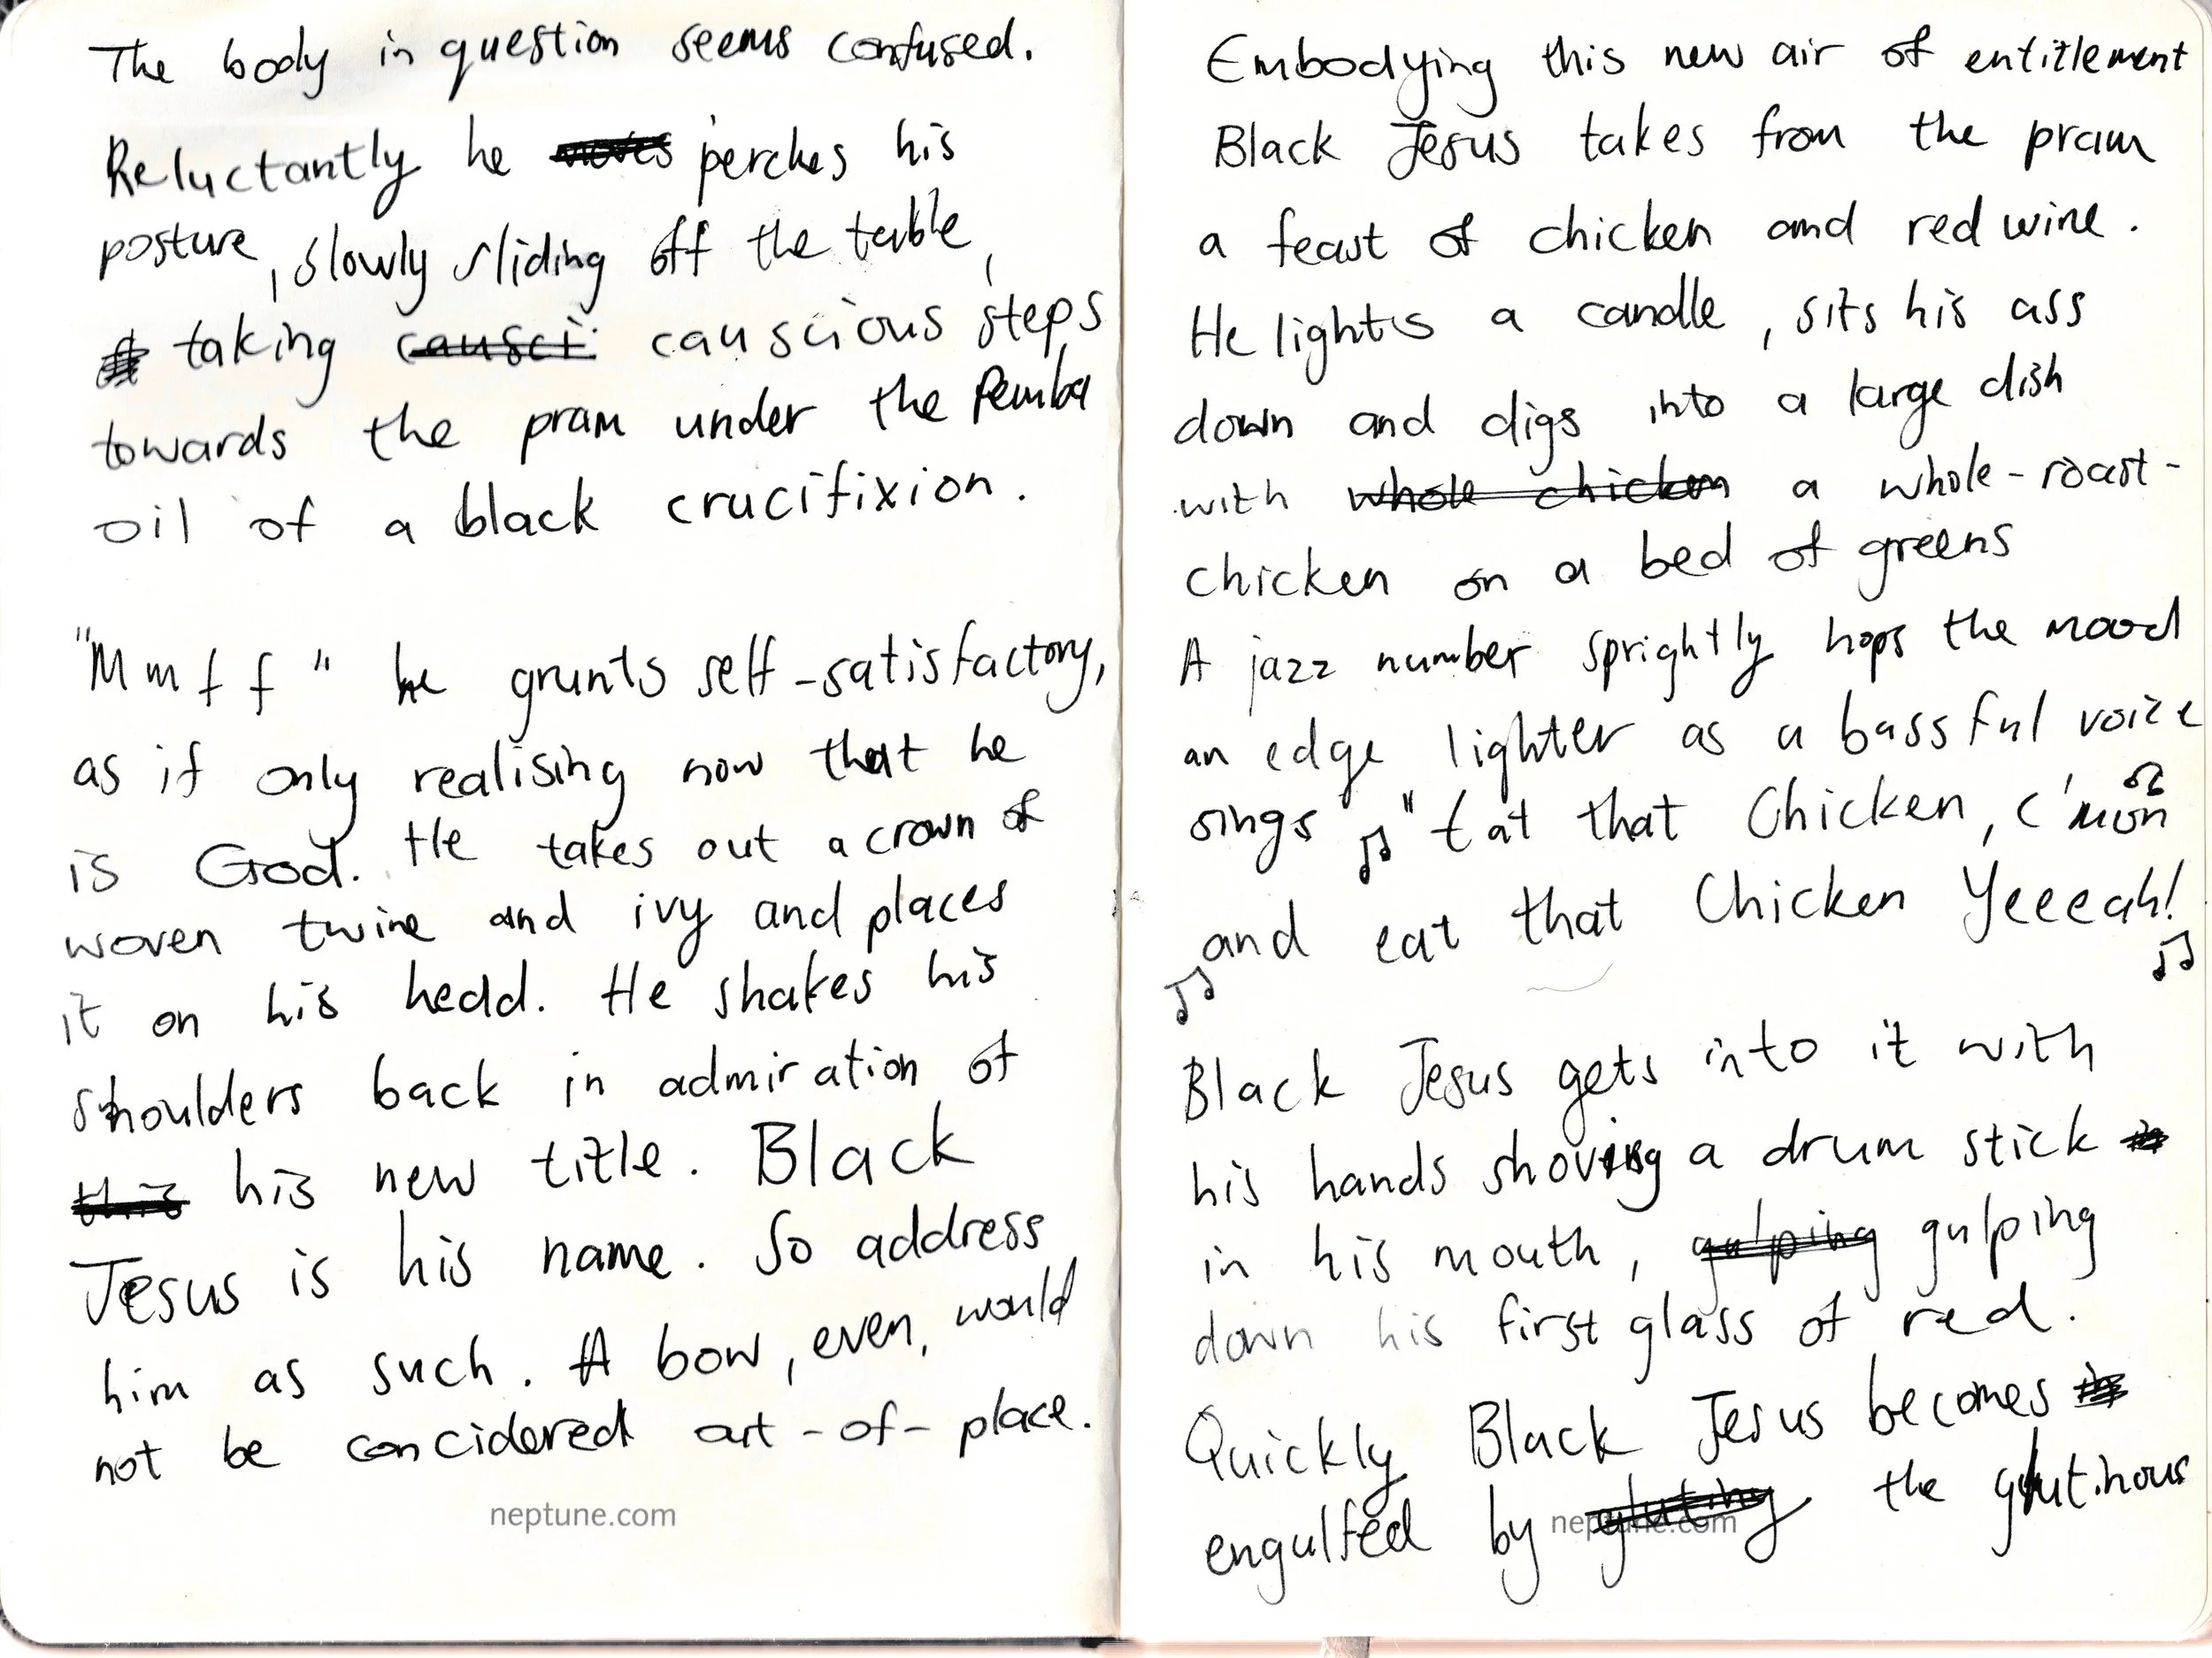 The body in question seems confused.
Reluctantly he moves perches his
posture, slowly sliding off the table,
taking causci causcious steps
towards the pram under the Pemba
oil of a black crucifixion.
"Mmff" he grunts self-satisfactory,
as if only realising now that he
is God. He takes out a crown of
woven twine and ivy and places
it on his hedd. He shakes his
shoulders back in admiration of
this his new title. Black
Jesus is his name. So address
him as such. A bow, even, would
not be concidered out-of-place.
neptune.com
Embodying this new air of entitlement
Black Jesus takes from the pram
a feast of chicken and red wine.
He lights a candle, sits his ass
down and digs into a large dish
with whole chicken a whole-roast-
chicken on a bed of greens
A jazz number sprightly hops the mood
an edge lighter as a bassful voice
sings ♫ "Eat that Chicken, c'mon ♫
and eat that Chicken Yeeeah!
♫ ♫
Black Jesus gets into it with
his hands shoving a drum stick
in his mouth, gulping gulping
down his first glass of red.
Quickly Black Jesus becomes
engulfed by the glutinous
neptune.com